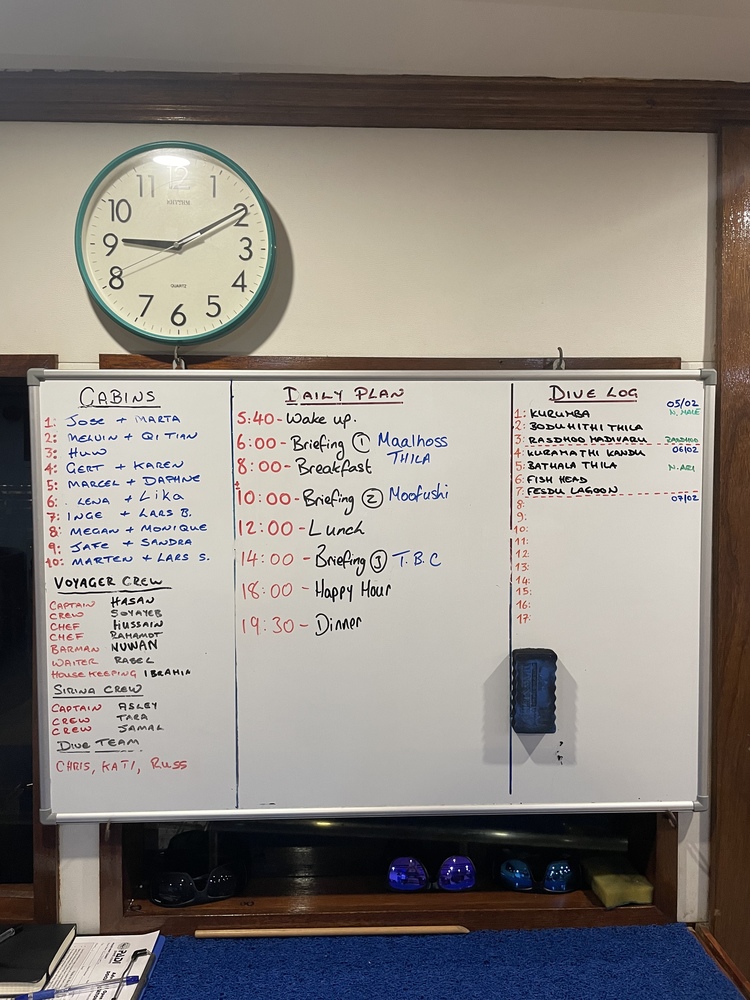 12
11
1
10
2
9
3
8
4
7
5
6
RHYTHM
QUARTZ
CABINS
1: JOSE + MARTA
2: MELVIN + QI TIAN
3: HUW
4: GERT + KAREN
5: MARCEL + DAPHNE
6: LENA + Lika
7: INGE + LARS B.
8: MEGAN + MONIQUE
9: JAFE + SANDRA
10: MARTEN + LARS S.
VOYAGER CREW
CAPTAIN HASAN
CREW SOYAYEB
CHEF HUSSAIN
CHEF RAHAMOT
BARMAN NUWAN
WAITER RASEL
HOUSE KEEPING IBRAHIM
SIRINA CREW
CAPTAIN ASLEY
CREW TARA
CREW JAMAL
DIVE TEAM
CHRIS, KATI, RUSS
DAILY PLAN
5:40 - Wake up.
6:00 - Briefing ① Maalhoss
THILA
8:00 - Breakfast
10:00 - Briefing ② Moofushi
12:00 - Lunch
14:00 - Briefing ③ T.B.C
18:00 - Happy Hour
19:30 - Dinner
DIVE LOG
05/02
1: KURUMBA N. MALE
2: BODU HITHI THILA
3: RASDHOO MADIVARU RASDHOO
4: KURAMATHI KANDU 06/02
5: BATHALA THILA N. ARI
6: FISH HEAD
7: FESDU LAGOON
07/02
8:
9:
10:
11:
12:
13:
14:
15:
16:
17:
PADI